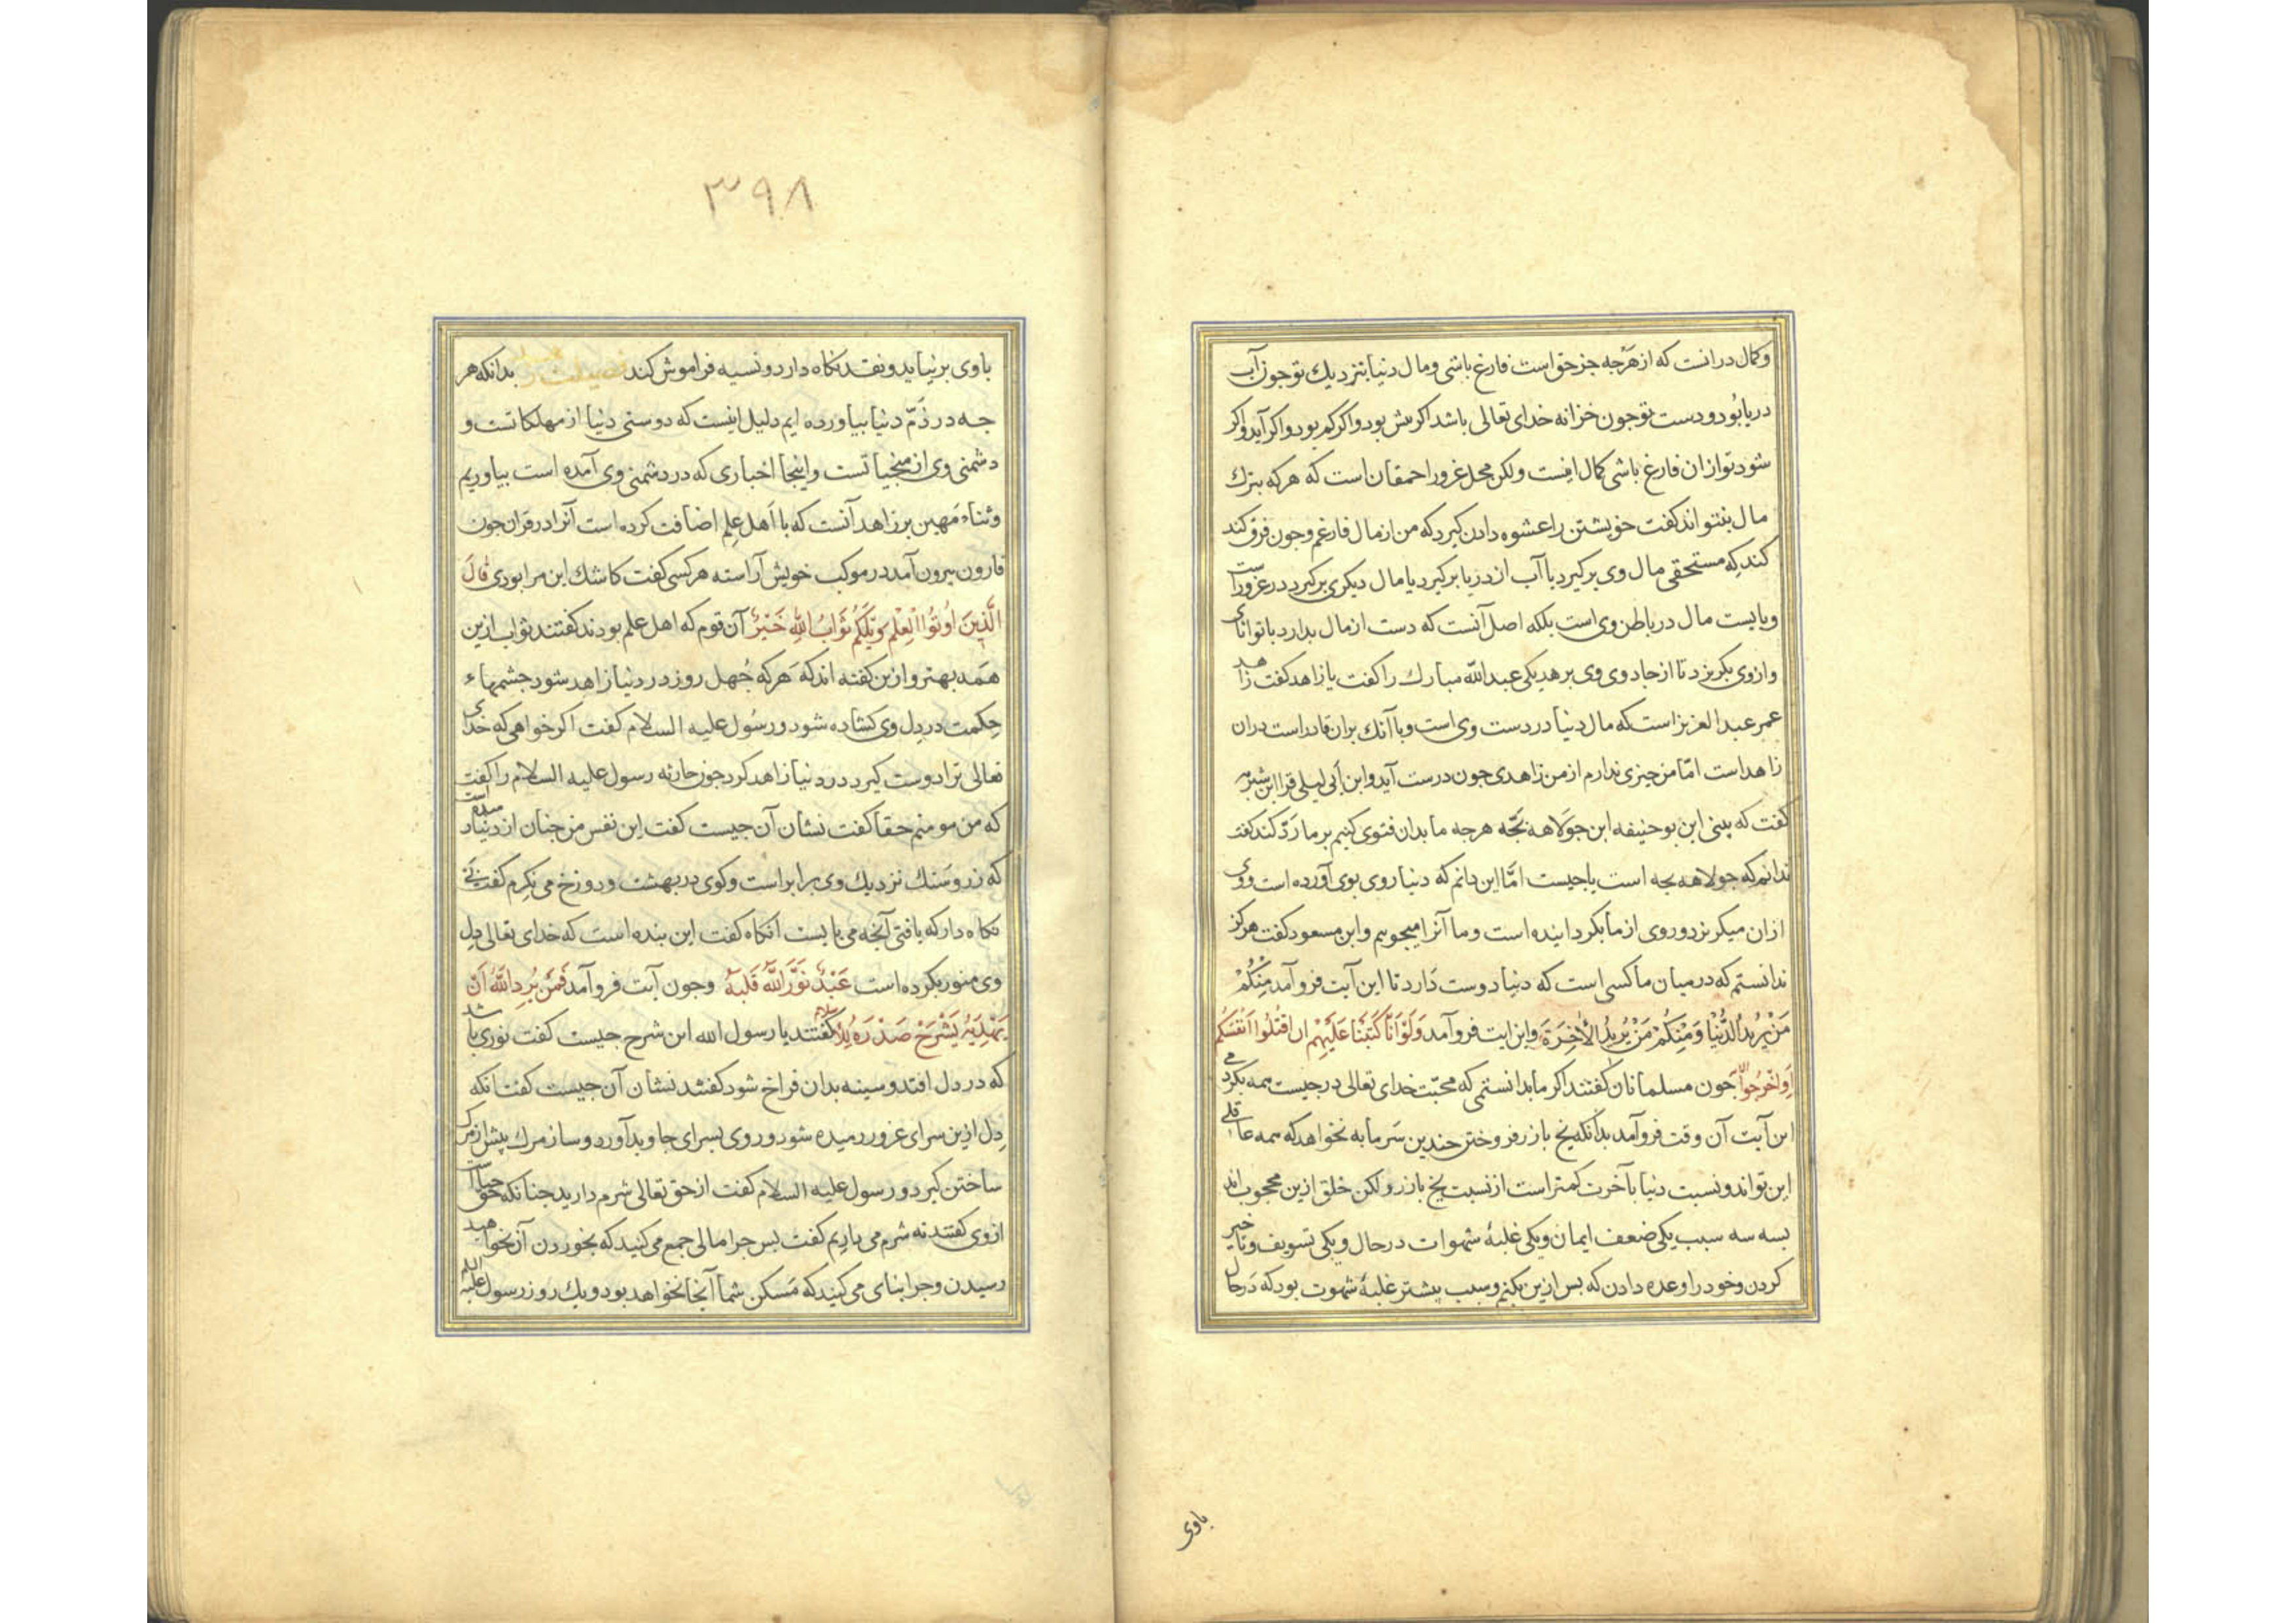 وکمال درانست که از هرچه جز حق است فارغ باشی ومال دنیا بنزدیك تو جون آب
دریا بود ودست تو جون خزانه خدای تعالی باشد اکر بیش بود واکر کم بود واکر آید واکر
شود تو از ان فارغ باشی کمال اینست ولکن محل غرور احمقان است که هرکه بترك
مال بنتواند کفت خویشتن را عشوه دادن کیرد که من از مال فارغم وجون فرق کند
کند که مستحقی مال وی برکیرد یا آب از دریا برکیرد یا مال دیکری برکیرد در غرور است
وبایست مال در باطن وی است بلکه اصل آنست که دست از مال بدارد با توانائی
وازوی بکریزد تا از جادوی وی برهد یکی عبد الله مبارك را کفت یا زاهد کفت زاهد
عمر عبد العزیز است که مال دنیا در دست وی است وبا آنك بران قادر است دران
زاهد است امّا من چیزی ندارم از من زاهدی جون درست آید وابن أبی لیلی فرا ابن شبرمه
کفت که بینی این بو حنیفه این جولاهه بچّه هرچه ما بدان فتوی کنیم بر ما ردّ کند کفت
ندانم که جولاهه بچه است یا جیست امّا این دانم که دنیا روی بوی آورده است ووی
ازان میکریزد وروی از ما بکردانیده است وما آنرا میجوییم وابن مسعود کفت هرکز
ندانستم که در میان ما کسی است که دنیا دوست دارد تا این آیت فرو آمد مِنْکُمْ
مَنْ یُرِیدُ الدُّنْیَا وَمِنْکُمْ مَنْ یُرِیدُ الْآخِرَةَ واین ایت فرو آمد وَلَوْ أَنَّا کَتَبْنَا عَلَیْهِمْ ان اقْتُلُوا أَنْفُسَکُمْ
أَوِ اخْرُجُوا جون مسلمانان کفتند اکر ما بدانستمی که محبّت خدای تعالی در جیست همه بکردمی
این آیت آن وقت فرو آمد بدانکه یخ باز زر فروختن چندین سرمابه نخواهد که همه عاقلی
این تواند ونسبت دنیا باآخرت کمتر است از نسبت یخ باز زر ولکن خلق ازین محجوب اند
بسه سه سبب یکی ضعف ایمان ویکی غلبهٔ شهوات در حال ویکی تسویف وتاخیر
کردن وخود را وعده دادن که بس ازین بکنم وسبب بیشتر غلبهٔ شهوت بود که در حال
باوی
۳۹۸
باوی برنیاید ونقد نکاه دارد ونسیه فراموش کند بدانکه هر
جه در ذمّ دنیا بیاورده ایم دلیل اینست که دوستی دنیا از مهلکاتست و
دشمنی وی از منجیاتست واینجا اخباری که در دشمنی وی آمده است بیاوریم
وثناء مَهین بر زاهد آنست که با اَهل عِلم اضافت کرده است آنرا در قران جون
قارون بیرون آمد در موکب خویش آراسته هرکسی کفت کاشك این مرا بودی قَالَ
الَّذِینَ اُوتُوا الْعِلْمَ وَیْلَکُمْ ثَوَابُ اللهِ خَیْرٌ آن قوم که اهل علم بودند کفتند ثواب ازین
همه بهتر وازین کفته اند که هرکه جُهل روز در دنیا زاهد شود جشمهاء
حِکمت در دِل وی کشاده شود ورسُول علیه السلام کفت اکر خواهی که خدای
تعالی ترا دوست کیرد در دنیا زاهد کرد جون حارثه رسول علیه السلام را کفت
که من مومنم حقا کفت نشان آن جیست کفت این نفس من جنان از دنیا رمیده است
که زر وسَنك نزدیك وی برابر است وکوی در بهشت ودوزخ می نکرم کفت
نکاه دار که یافتی آنجه می بایست انکاه کفت این بنده است که خدای تعالی دِل
وی منور بکرده است عَبْدٌ نَوَّرَ اللهُ قَلْبَهُ وجون آیت فرو آمد فَمَنْ یُرِدِ اللهُ اَنْ
یَهْدِیَهُ یَشْرَحْ صَدْرَهُ لِلْاِسْلَامِ کفتند یا رسول الله این شرح جیست کفت نوری باشد
که در دل افتد وسینه بدان فراخ شود کفتند نشان آن جیست کفت انکه
دِل ازین سرای غرور رمیده شود وروی بسرای جاوید آورد وساز مرك بیش از مرك
ساختن کیرد ورسول علیه السلام کفت از حق تعالی شرم دارید جنانکه حق حیا است
ازوی کفتند نه شرم می داریم کفت بس جرا مالی جمع می کنید که بخوردن آن نخواهید
رسیدن وجرا بنای می کنید که مَسکن شما آنجا نخواهد بود ویك روز رسول علیه السلم